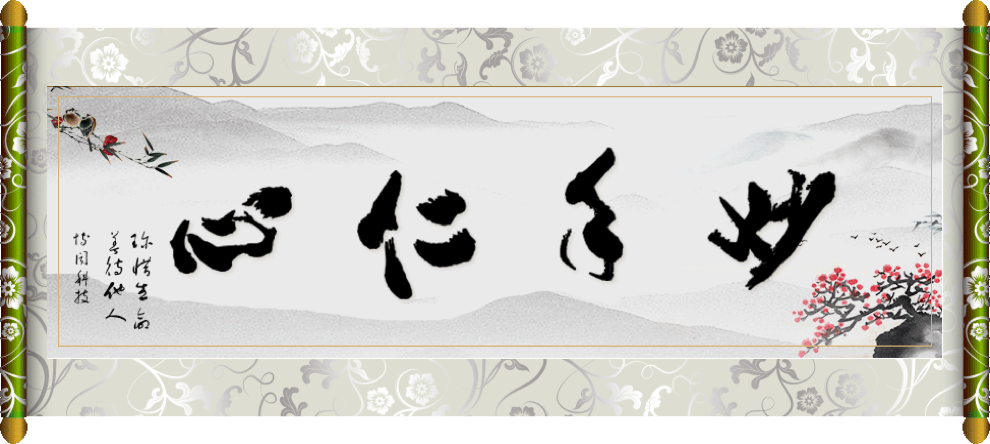 妙手仁心
珍惜生命
善待他人
博同科技